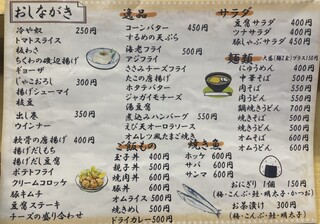 おしながき
冷や奴 250円
トマトスライス
板わさ
ちくわの磯辺揚げ
ギョーザ
じゃこおろし 300円
揚げシューマイ
枝豆
出し巻 350円
ウインナー
軟骨の唐揚げ 400円
揚げだしもち
揚げだし豆腐
ポテトフライ
クリームコロッケ
豚キムチ
豆腐ステーキ
チーズの盛り合わせ
逸品
コーンバター 450円
するめの天ぷら
海老フライ 500円
アジフライ
ささみチーズフライ
たこの唐揚げ
ホタテバター
ジャガイモチーズ
湯豆腐
煮込みハンバーグ 550円
えび天オーロラソース
オムレツ風たまご焼き
ご飯もの
玉子丼 400円
木の葉丼 500円
親子丼 600円
焼肉丼 600円
豚丼 600円
オムライス 500円
焼きめし 500円
ドライカレー 500円
焼き魚
ホッケ 600円
サバ 500円
サンマ 400円
サラダ
豆腐サラダ 400円
ツナサラダ 400円
豚しゃぶサラダ 450円
麺類
大盛(麺2玉)プラス150円
にゅうめん 400円
中華そば 500円
肉そば 550円
肉うどん 550円
鍋焼きうどん 650円
焼きそば 500円
焼うどん 500円
オムそば 600円
オムうどん 600円
おにぎり 1個 150円
(梅・こんぶ・鮭・明太子・かつお)
お茶漬け 300円
(梅・こんぶ・鮭・明太子)